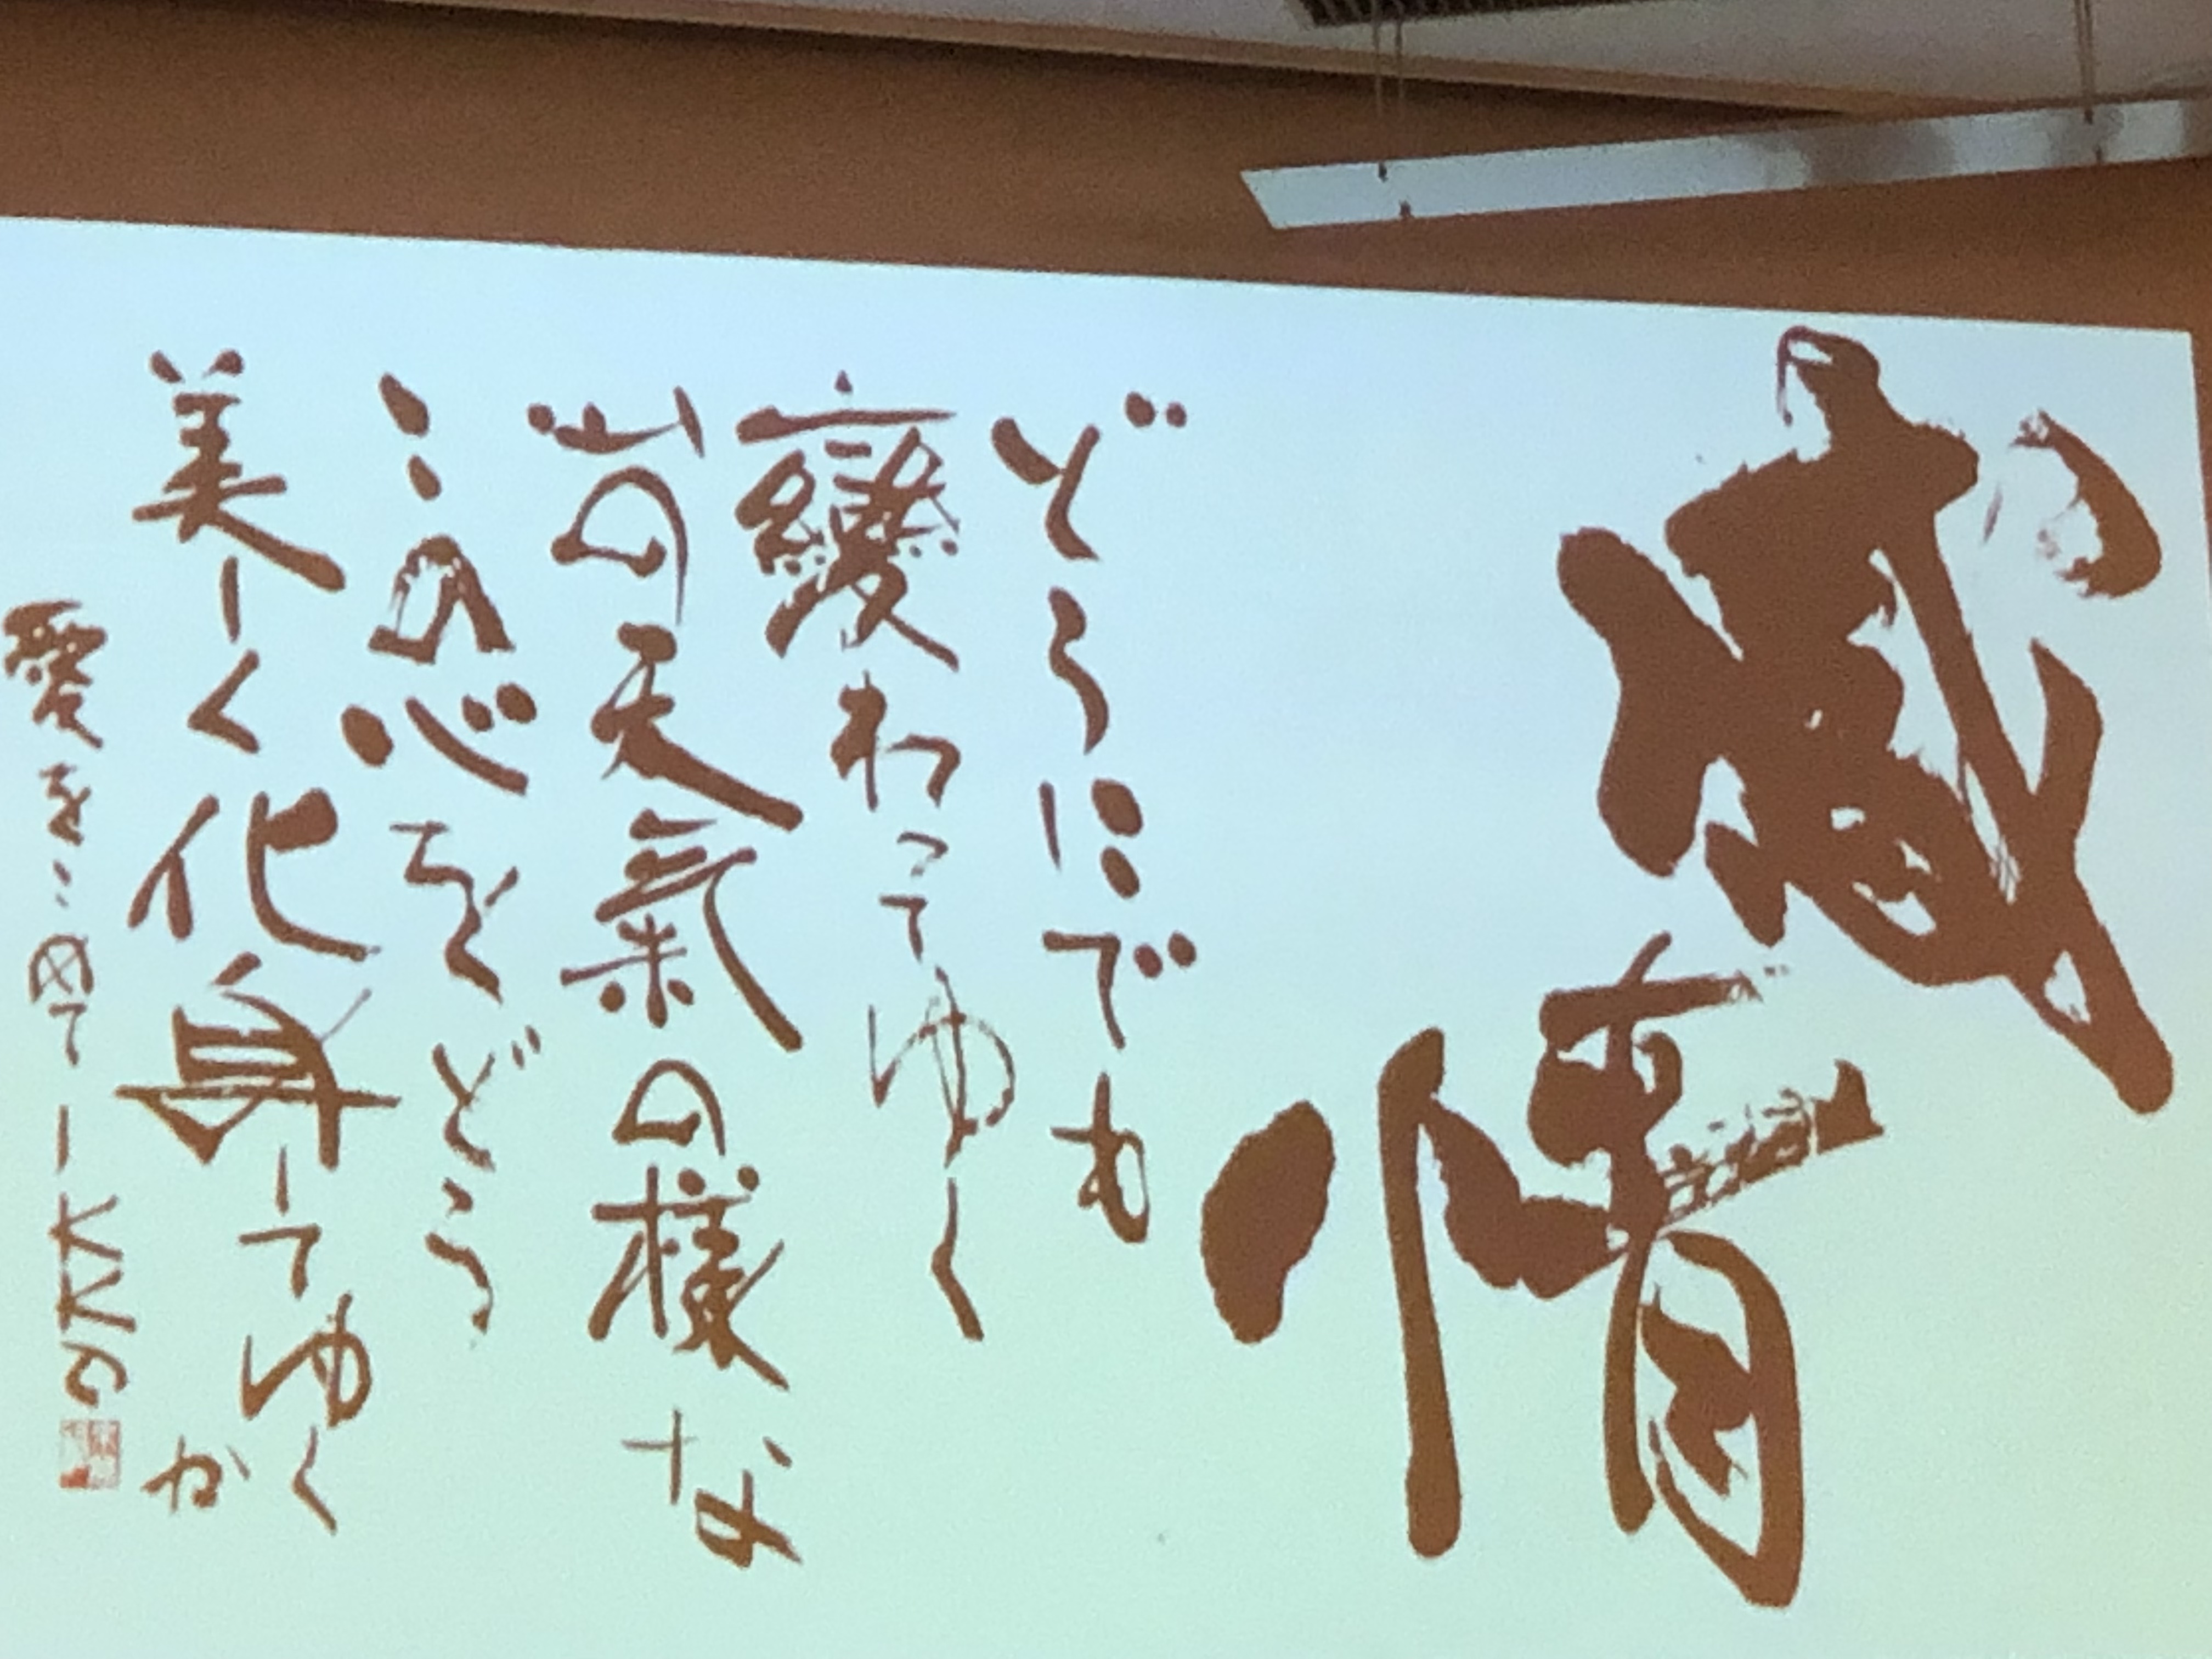 感情
どうにでも
變わってゆく
山の天氣の様な
この心をどう
美しく化身してゆくか
愛をこめて IKKO